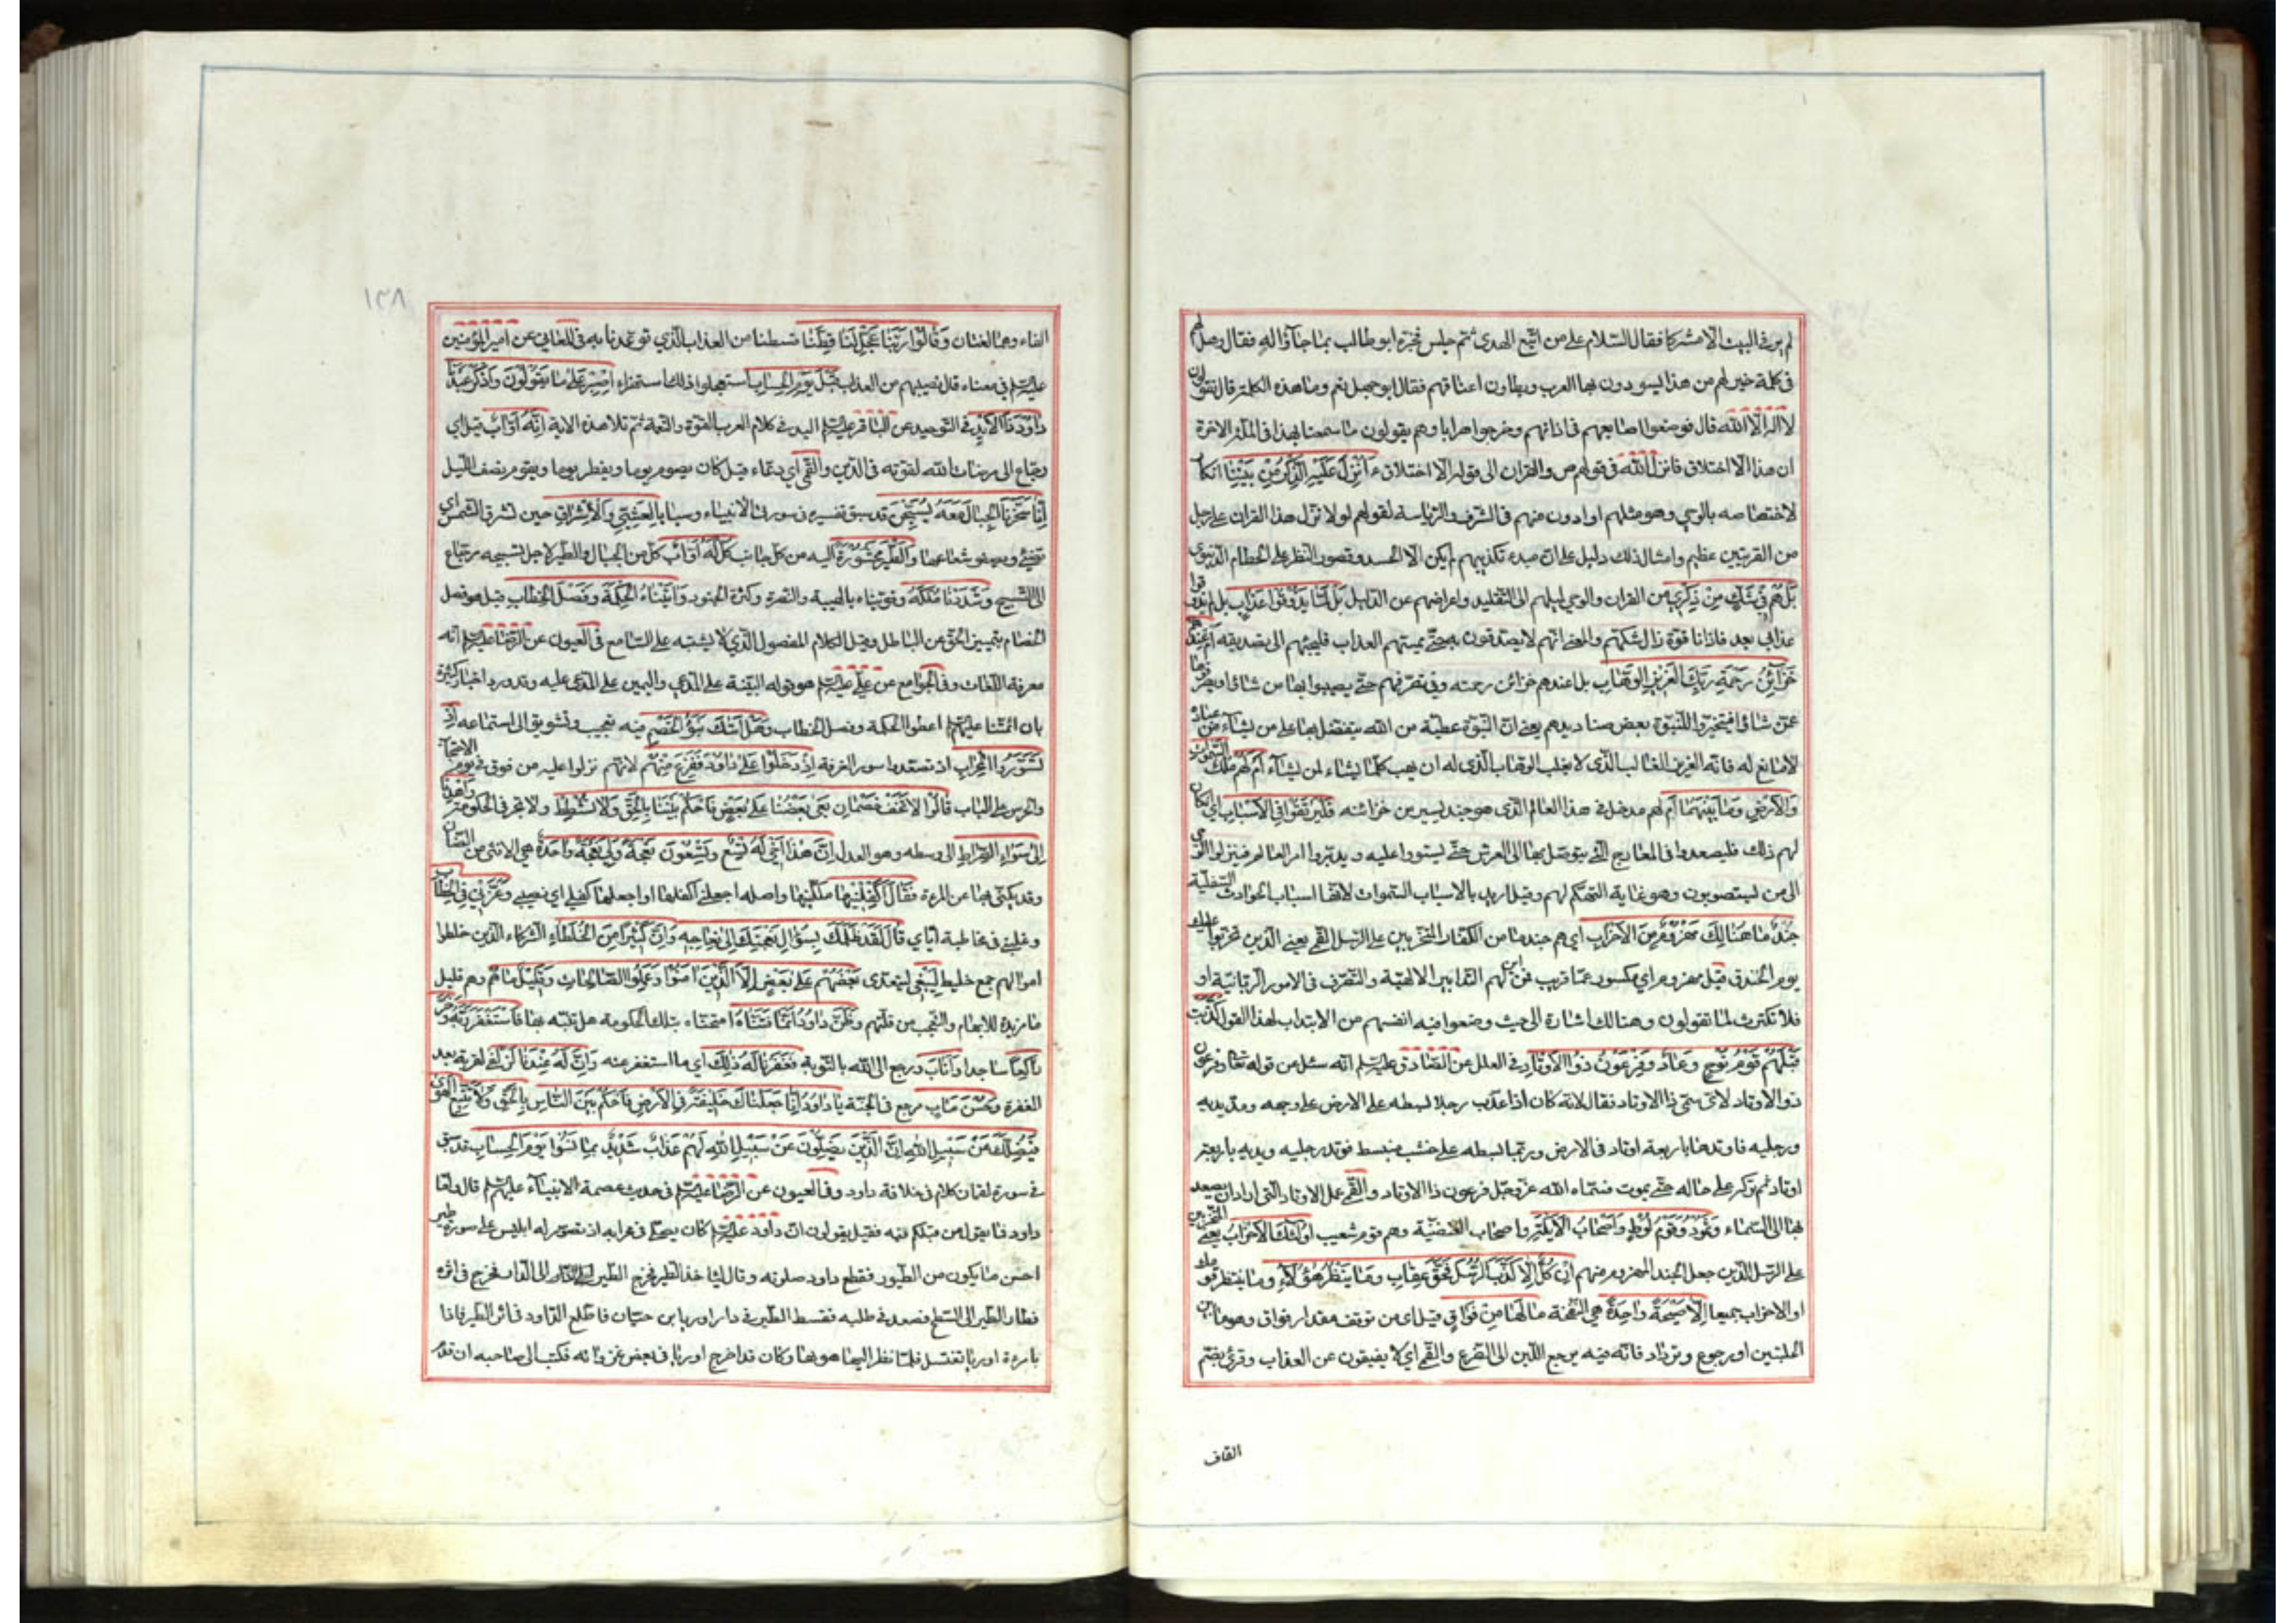 لم ير في البيت الا مشركا فقال السلام على من اتبع الهدى ثم جلس فخبره ابو طالب بما جاؤا له فقال وهل لهم
في كلمة خير لهم من هذا يسودون بها العرب ويطاون اعناقهم فقال ابو جهل نعم وما هذه الكلمة قال تقولون
لا اله الا الله قال فوضعوا اصابعهم في اذانهم وخرجوا هرابا وهم يقولون ما سمعنا بهذا في الملة الاخرة
ان هذا الا اختلاق فانزل الله في قولهم ص والقران الى قوله الا اختلاق ءَاُنْزِلَ عَلَيْهِ الذِّكْرُ مِنْ بَيْنِنَا انكار
لاختصاصه بالوحي وهو مثلهم او ادون منهم في الشرف والرياسة لقولهم لولا نزل هذا القران على رجل
من القريتين عظيم وامثال ذلك دليل على ان مبدء تكذيبهم لم يكن الا الحسد وقصور النظر على الحطام الدنيوي
بَلْ هُمْ فِي شَكٍّ مِنْ ذِكْرِي من القران والوحي لميلهم الى التقليد واعراضهم عن الدليل بَلْ لَمَّا يَذُوقُوا عَذَابِ بل لم يذوقوا
عذابي بعد فاذا ذاقوه زال شكهم والمعنى انهم لا يصدقون به حتى يمسهم العذاب فيلجئهم الى تصديقه اَمْ عِنْدَهُمْ
خَزَآئِنُ رَحْمَةِ رَبِّكَ الْعَزِيزِ الْوَهَّابِ بل اعندهم خزائن رحمته وفي تصرفهم حتى يصيبوا بها من شاؤا ويصرفوها
عمن شاؤا فيتخيروا للنبوة بعض صناديدهم يعني ان النبوة عطية من الله يتفضل بها على من يشاء من عباده
لا مانع له فانه العزيز الغالب الذي لا يغلب الوهاب الذي له ان يهب كلما يشاء لمن يشاء اَمْ لَهُمْ مُلْكُ السَّمٰوَاتِ
وَالْاَرْضِ وَمَا بَيْنَهُمَا ام لهم مدخل في هذا العالم الذي هو جند يسير من خزائنه فَلْيَرْتَقُوا فِي الْاَسْبَابِ اي ان كان
لهم ذلك فليصعدوا في المعارج التي يتوصل بها الى العرش حتى يستووا عليه ويدبروا امر العالم فينزلوا الوحي
الى من يستصوبون وهو غاية التهكم لهم وقيل اريد بالاسباب السموات لانها اسباب الحوادث السفلية
جُنْدٌ مَا هُنَالِكَ مَهْزُومٌ مِنَ الْاَحْزَابِ اي هم جند ما من الكفار المتحزبين على الرسل القمي يعني الذين تحزبوا عليك
يوم الخندق قيل مهزوم اي مكسور عما قريب فمن اين لهم التدابير الالهية والتصرف في الامور الربانية او
فلا تكترث لما تقولون وهنالك اشارة الى حيث وضعوا فيه انفسهم من الابتداب لهذا القول كَذَّبَتْ
قَبْلَهُمْ قَوْمُ نُوحٍ وَعَادٌ وَفِرْعَوْنُ ذُو الْاَوْتَادِ في العلل عن الصادق عليه السلام انه سئل عن قوله تعالى وفرعون
ذو الاوتاد لاي شئ سمي ذا الاوتاد فقال لانه كان اذا عذب رجلا بسطه على الارض على وجهه ومد يديه
ورجليه فاوتدها باربعة اوتاد في الارض وربما بسطه على خشب منبسط فوتد رجليه ويديه باربعة
اوتاد ثم تركه على حاله حتى يموت فسماه الله عز وجل فرعون ذا الاوتاد والقمي عمل الاوتاد التي اراد ان يصعد
بها الى السماء وَثَمُودُ وَقَوْمُ لُوطٍ وَاَصْحَابُ الْاَيْكَةِ واصحاب الغيضة وهم قوم شعيب اُولٰئِكَ الْاَحْزَابُ يعني المتحزبين
على الرسل الذين جعل الجند المهزوم منهم اِنْ كُلٌّ اِلَّا كَذَّبَ الرُّسُلَ فَحَقَّ عِقَابِ وَمَا يَنْظُرُ هٰؤُلَاءِ وما ينتظر قومك
او الاحزاب جميعا اِلَّا صَيْحَةً وَاحِدَةً هي النفخة مَا لَهَا مِنْ فَوَاقٍ قيل اي من توقف مقدار فواق وهو ما بين
الحلبتين او رجوع وترداد فانه فيه يرجع اللبن الى الضرع والقمي اي لا يفيقون عن العذاب وقرئ بضم
القاف
١٣٨
الفاء وهما لغتان وَقَالُوا رَبَّنَا عَجِّلْ لَنَا قِطَّنَا قسطنا من العذاب الذي توعدنا به في المعاني عن امير المؤمنين
عليه السلام في معناه قال نصيبهم من العذاب قَبْلَ يَوْمِ الْحِسَابِ استعجلوا ذلك استهزاء اِصْبِرْ عَلٰى مَا يَقُولُونَ وَاذْكُرْ عَبْدَنَا
دَاوُدَ ذَا الْاَيْدِ في التوحيد عن الباقر عليه السلام اليد في كلام العرب القوة والنعمة ثم تلا هذه الاية اِنَّهُ اَوَّابٌ قيل اي
رجاع الى مرضات الله لقوته في الدين والقمي اي دعاء قيل كان يصوم يوما ويفطر يوما ويقوم نصف الليل
اِنَّا سَخَّرْنَا الْجِبَالَ مَعَهُ يُسَبِّحْنَ قد سبق تفسيره في سورة الانبياء وسبا بِالْعَشِيِّ وَالْاِشْرَاقِ حين تشرق الشمس اي
تضئ ويصفو شعاعها وَالطَّيْرَ مَحْشُورَةً اليه من كل جانب كُلٌّ لَهُ اَوَّابٌ كل من الجبال والطير لاجل تسبيحه رجاع
الى التسبيح وَشَدَدْنَا مُلْكَهُ وقويناه بالهيبة والنصرة وكثرة الجنود وَاٰتَيْنَاهُ الْحِكْمَةَ وَفَصْلَ الْخِطَابِ قيل هو فصل
الخصام بتمييز الحق عن الباطل وقيل الكلام المفصول الذي لا يشتبه على السامع في العيون عن الرضا عليه السلام انه
معرفة اللغات وفي الجوامع عن علي عليه السلام هو قوله البينة على المدعي واليمين على المدعى عليه وقد ورد اخبار كثيرة
بان ائمتنا عليهم السلام اعطوا الحكمة وفصل الخطاب وَهَلْ اَتٰيكَ نَبَؤُا الْخَصْمِ فيه تعجيب وتشويق الى استماعه اِذْ
تَسَوَّرُوا الْمِحْرَابَ اذ تصعدوا سور الغرفة اِذْ دَخَلُوا عَلٰى دَاوُدَ فَفَزِعَ مِنْهُمْ لانهم نزلوا عليه من فوق في يوم الاحتجاب
والحرس على الباب قَالُوا لَا تَخَفْ خَصْمَانِ بَغٰى بَعْضُنَا عَلٰى بَعْضٍ فَاحْكُمْ بَيْنَنَا بِالْحَقِّ وَلَا تُشْطِطْ ولا تجر في الحكومة وَاهْدِنَا
اِلٰى سَوَاءِ الصِّرَاطِ الى وسطه وهو العدل اِنَّ هٰذَا اَخِي لَهُ تِسْعٌ وَتِسْعُونَ نَعْجَةً وَلِيَ نَعْجَةٌ وَاحِدَةٌ هي الانثى من الضان
وقد يكنى بها عن المرءة فَقَالَ اَكْفِلْنِيهَا ملكنيها واصله اجعلني اكفلها او اجعلها كفلي اي نصيبي وَعَزَّنِي فِي الْخِطَابِ
وغلبني في مخاطبة اياي قَالَ لَقَدْ ظَلَمَكَ بِسُؤَالِ نَعْجَتِكَ اِلٰى نِعَاجِهِ وَاِنَّ كَثِيرًا مِنَ الْخُلَطَاءِ الشركاء الذين خلطوا
اموالهم جمع خليط لَيَبْغِي ليتعدى بَعْضُهُمْ عَلٰى بَعْضٍ اِلَّا الَّذِينَ اٰمَنُوا وَعَمِلُوا الصَّالِحَاتِ وَقَلِيلٌ مَا هُمْ وهم قليل
ما مزيدة للابهام والتعجب من قلتهم وَظَنَّ دَاوُدُ اَنَّمَا فَتَنَّاهُ امتحناه بتلك الحكومة هل تنبه بها فَاسْتَغْفَرَ رَبَّهُ وَخَرَّ
رَاكِعًا ساجدا وَاَنَابَ ورجع الى الله بالتوبة فَغَفَرْنَا لَهُ ذٰلِكَ اي ما استغفر عنه وَاِنَّ لَهُ عِنْدَنَا لَزُلْفٰى لقربة بعد
المغفرة وَحُسْنَ مَاٰبٍ مرجع في الجنة يَا دَاوُدُ اِنَّا جَعَلْنَاكَ خَلِيفَةً فِي الْاَرْضِ فَاحْكُمْ بَيْنَ النَّاسِ بِالْحَقِّ وَلَا تَتَّبِعِ الْهَوٰى
فَيُضِلَّكَ عَنْ سَبِيلِ اللّٰهِ اِنَّ الَّذِينَ يَضِلُّونَ عَنْ سَبِيلِ اللّٰهِ لَهُمْ عَذَابٌ شَدِيدٌ بِمَا نَسُوا يَوْمَ الْحِسَابِ قد سبق
في سورة لقمان كلام في خلافة داود وفي العيون عن الرضا عليه السلام في حديث عصمة الانبياء عليهم السلام قال واما
داود فما يقول من قبلكم فيه فقيل يقولون ان داود عليه السلام كان يصلي في محرابه اذ تصور له ابليس على صورة طير
احسن ما يكون من الطيور فقطع داود صلوته وقام لياخذ الطير فخرج الطير الى الدار فخرج في اثره
فطار الطير الى السطح فصعد في طلبه فسقط الطير في دار اوريا بن حنان فاطلع داود في اثر الطير فاذا
بامرءة اوريا تغتسل فلما نظر اليها هويها وكان قد اخرج اوريا في بعض غزواته فكتب الى صاحبه ان قدم